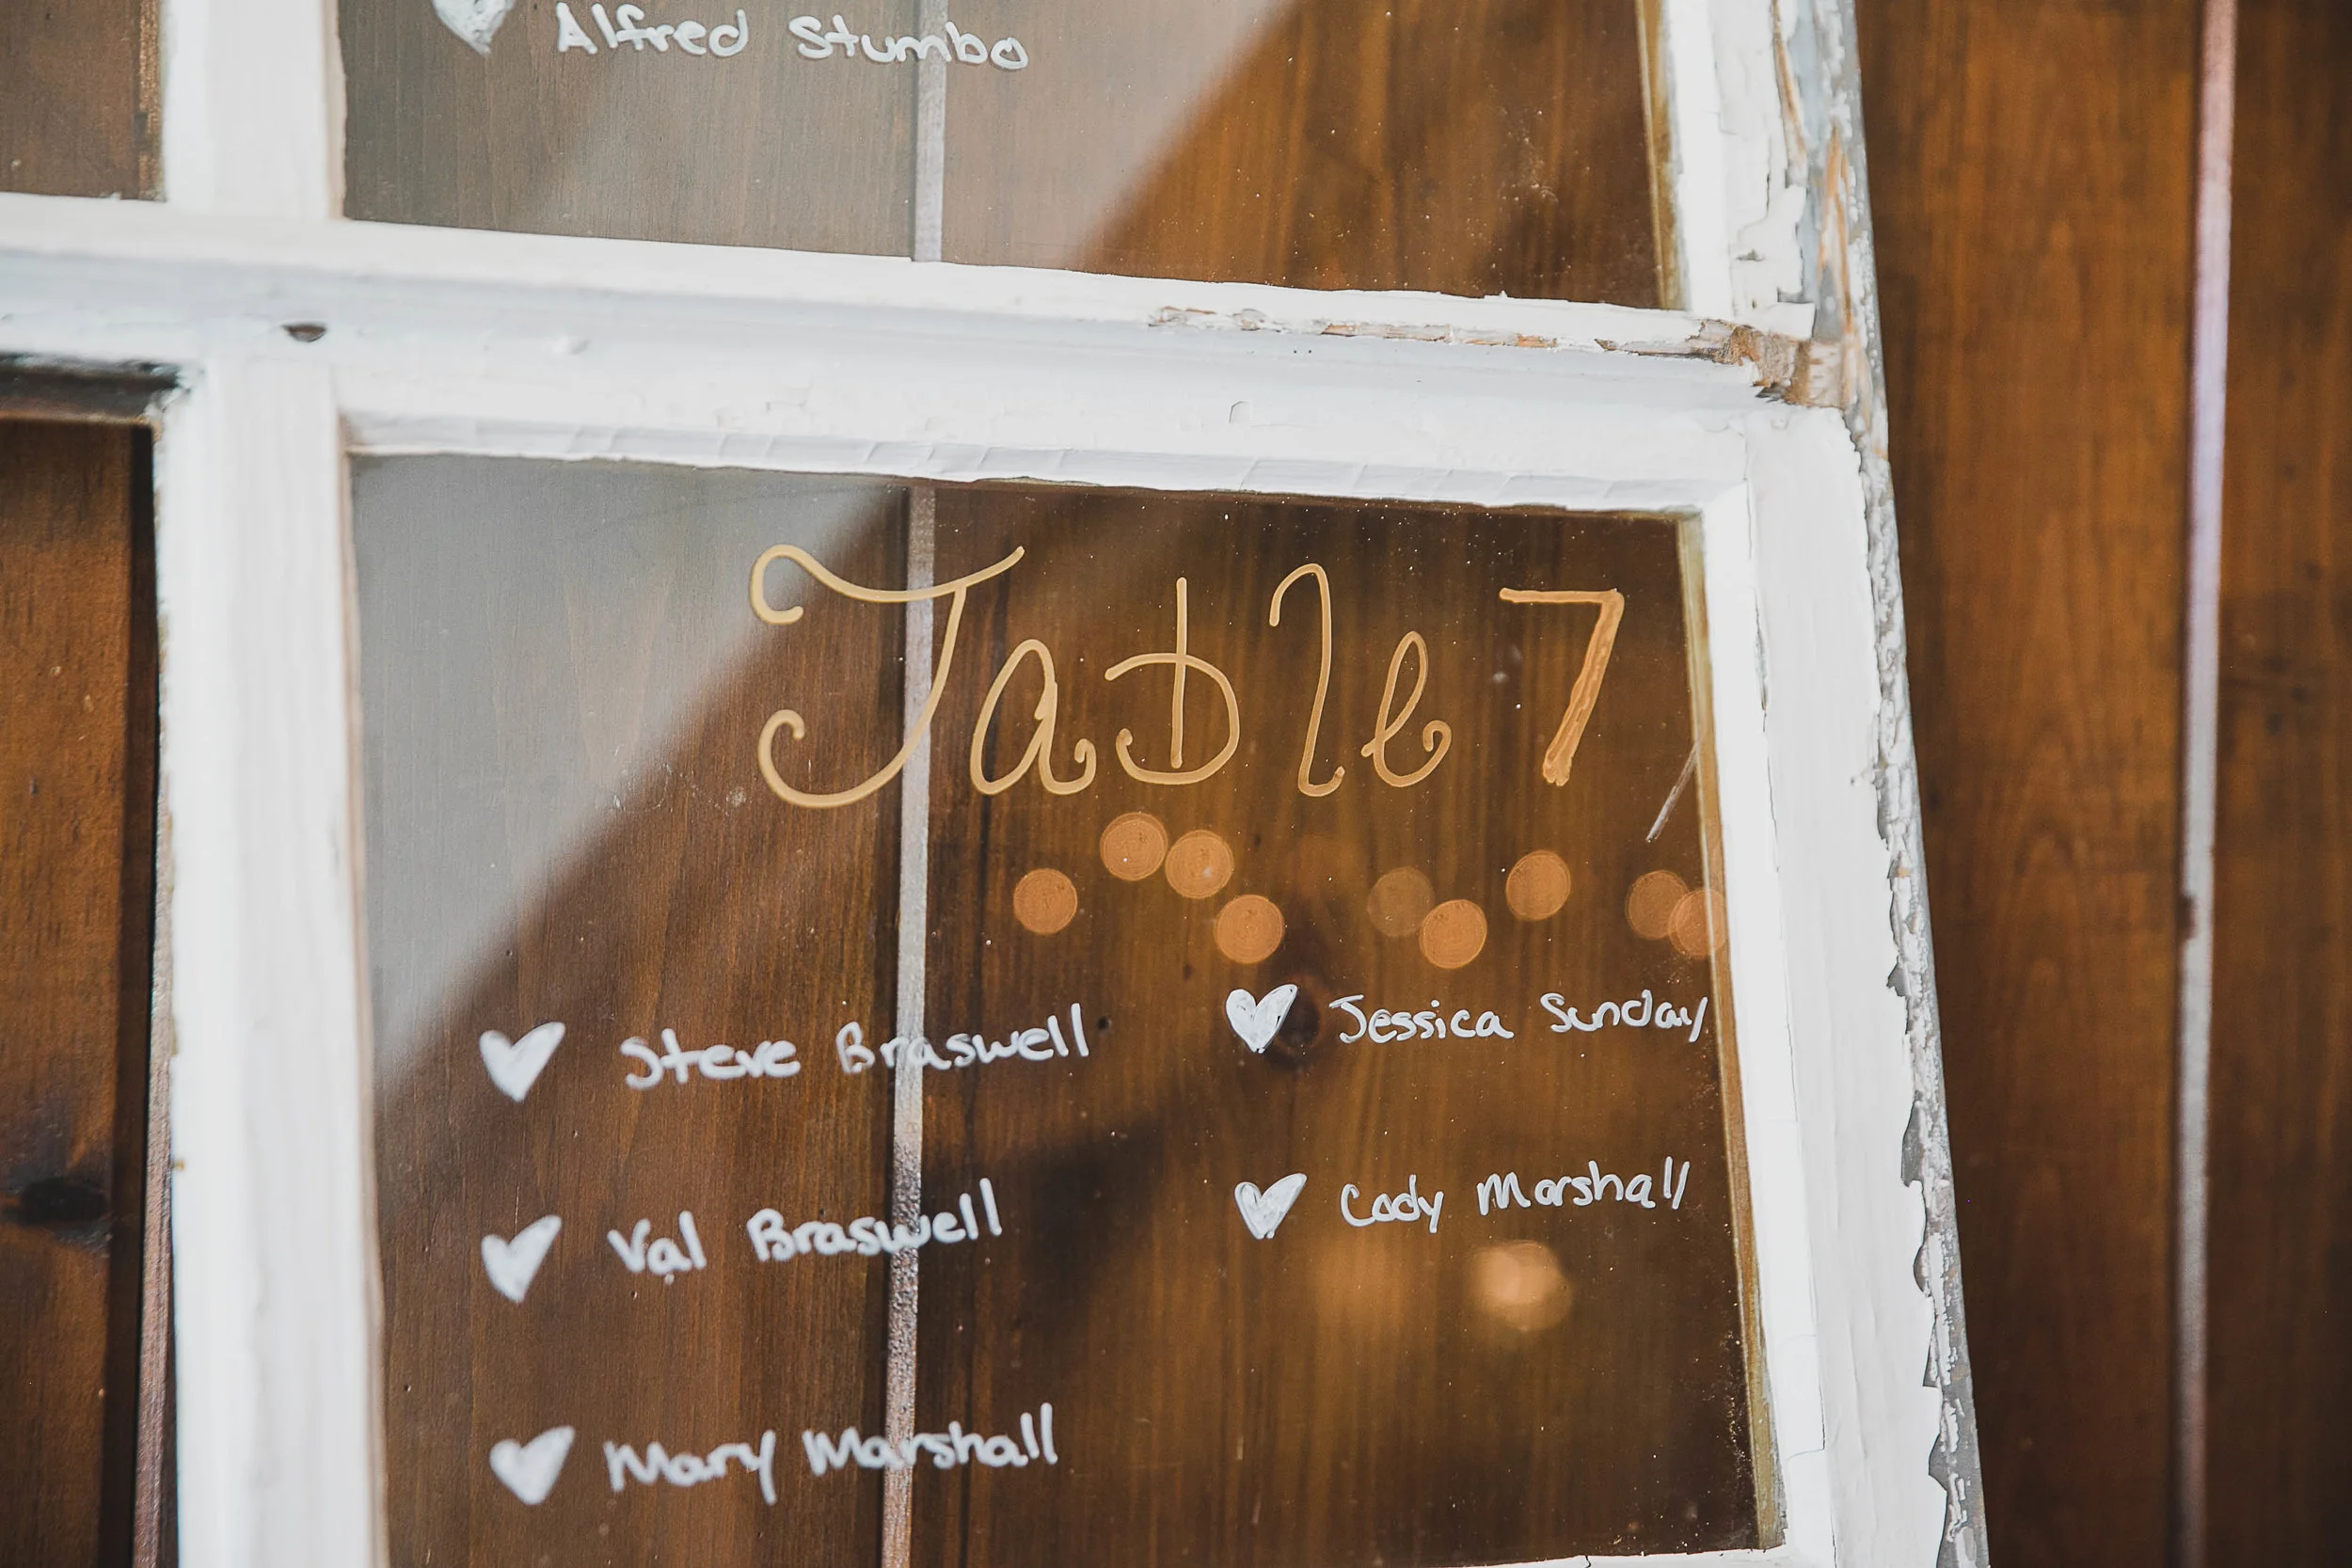 Alfred Stumbo
Table 7
Steve Braswell
Val Braswell
Mary Marshall
Jessica Sunday
Cody Marshall